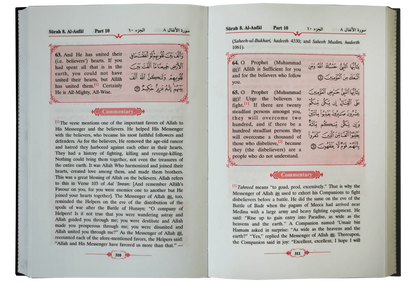 Sûrah 8. Al-Anfâl Part 10 الجزء ١٠ سورة الأنفال ٨
63. And He has united their
(i.e. believers') hearts. If you
had spent all that is in the
earth, you could not have
united their hearts, but Allâh
has united them. Certainly
He is All-Mighty, All-Wise.
Commentary
The verse mentions one of the important favors of Allah to
His Messenger and the believers. He helped His Messenger
with the believers, who became his most faithful followers and
defenders. As for the believers, He removed the age-old rancor
and hatred they harbored against each other in their hearts.
They had a history of fighting, killing and revenge-killing.
Nothing could bring them together, not even the treasures of
the entire earth. It was Allah Who harmonized and joined their
hearts, created love among them, and made them brothers.
This was a great blessing of Allah on the believers. Allah refers
to this in Verse 103 of Aal 'Imran: [And remember Allâh's
Favour on you, for you were enemies one to another but He
joined your hearts together]. The Messenger of Allah ﷺ, too,
reminded the Helpers on the eve of the distribution of the
spoils of war after the Battle of Hunayn: "O company of
Helpers! Is it not true that you were wandering astray and
Allah guided you through me; you were destitute and Allah
made you prosperous through me; you were disunited and
Allah united you through me?" As the Messenger of Allah ﷺ
recounted each of the afore-mentioned favors, the Helpers said:
"Allah and His Messenger have favored us more than that." —
310
Sûrah 8. Al-Anfâl Part 10 الجزء ١٠ سورة الأنفال ٨
(Saheeh ul-Bukhari, hadeeth 4330; and Saheeh Muslim, hadeeth
1061).
64. O Prophet (Muhammad
ﷺ)! Allâh is Sufficient for you
and for the believers who follow
you.
65. O Prophet (Muhammad
ﷺ)! Urge the believers to
fight. If there are twenty
steadfast persons amongst you,
they will overcome two
hundred, and if there be a
hundred steadfast persons they
will overcome a thousand of
those who disbelieve, because
they (the disbelievers) are a
people who do not understand.
Commentary
Tahreed means "to goad, prod, excessively." That is why the
Messenger of Allah ﷺ used to exhort his Companions to fight
disbelievers before a battle. He did the same on the eve of the
Battle of Badr when the pagans of Mecca had arrived near
Medina with a large army and heavy fighting equipment. He
said: "Rise up to gain entry into Paradise, as wide as the
heavens and the earth." A Companion named 'Umair bin
Humam asked in surprise: "As wide as the heavens and the
earth?" "Yes," replied the Messenger of Allah ﷺ. Thereupon,
the Companion said in joy: "Excellent, excellent, I hope I will
311